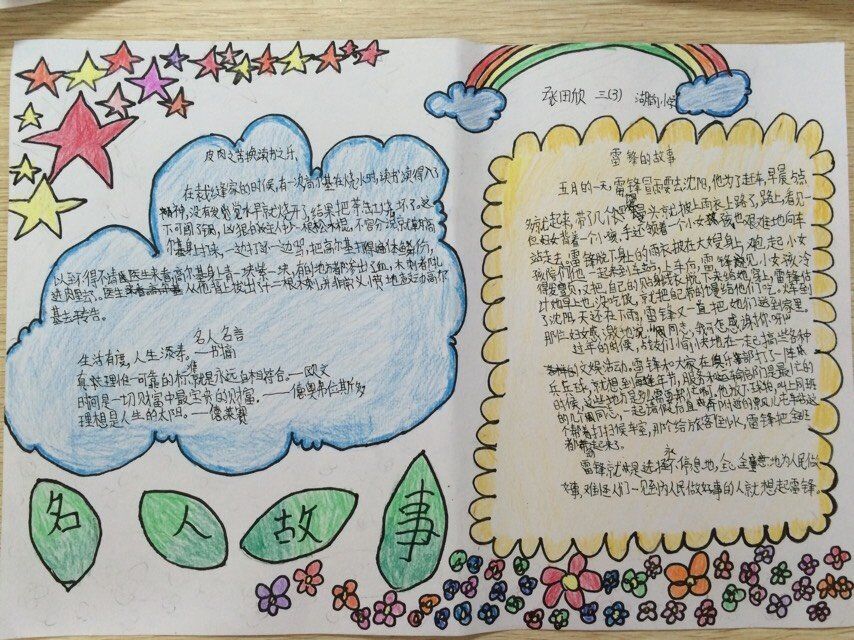 皮肉之苦换读书之乐
在裁缝家的时候,有一次高尔基在烧水时,读书读得入
神,没有发觉水早就烧开了,结果把茶缸烧坏了。这
以至不得不请医生来看高尔基身上青一块紫一块,有的地方都渗出了血,木刺都扎
进肉里了。医生从他背上拔出了十二根木刺
基去转告。
名人名言
生活有度,人生添寿。—书摘
真理唯一可靠的标准就是永远自相符合。—欧文
时间是一切财富中最宝贵的财富。——德奥弗拉斯多
理想是人生的太阳。—德莱赛
名人故事
张田欣 三(3) 湖前小学
雷锋的故事
五月的一天,雷锋冒雨要去沈阳,他为了赶车,早晨5点
多就起来,带了几个馒头就披上雨衣上路了,路上,看见一
位妇女背着一个小孩,手还领着一个小女孩也艰难地向车
站走去。雷锋脱下身上的雨衣披在大嫂身上,又抱起小女
孩陪他们一起来到车站,上车后,雷锋见小女孩冷
得发颤,又把自己的贴身线衣脱下来给她穿上,雷锋估
计她早上也没吃饭,就把自己带的馒头给她们吃。火车到
了沈阳,天还在下雨,雷锋又一直把她们送到家里。
那位妇女感激地说:“同志,我可怎么感谢你呀!”
过年的时候,战友们愉快地在一起搞些各种
文娱活动。雷锋和大家在俱乐部打了一阵
乒乓球,就想到每逢年节,服务和运输部门是最忙的
时候,这些地方多么需要帮忙啊。他放下球拍,叫上同班
的几个同志,一起请假后直奔附近的
个帮着打扫候车室,那个给旅客倒水,雷锋把全班
都带起来了。
雷锋就是选择永不停息地,全心全意地为人民做
好事,难怪人们一见到为人民做好事的人就想起雷锋。